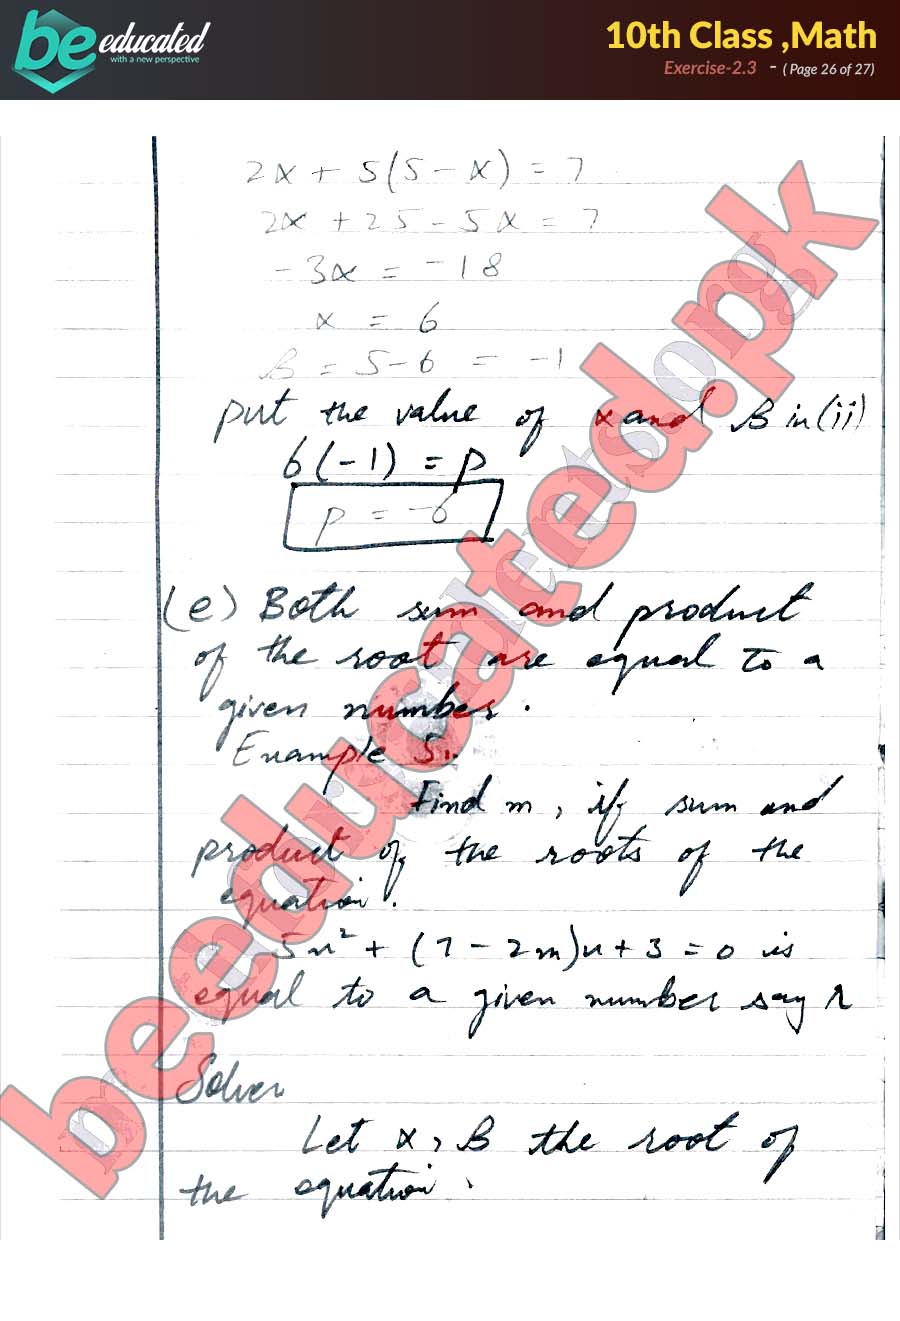 be educated
with a new perspective
10th Class ,Math
Exercise-2.3 - ( Page 26 of 27)
2α + 5(5 - α) = 7
2α + 25 - 5α = 7
-3α = -18
α = 6
β = 5-6 = -1
put the value of α and β in (ii)
6(-1) = p
p = -6
(e) Both sum and product
of the root are equal to a
given number.
Example 5:.
Find m, if sum and
product of the roots of the
equation.
5x² + (7 - 2m)x + 3 = 0 is
equal to a given number say λ
Solver
Let α, β the root of
the equation.
beeducated.pk